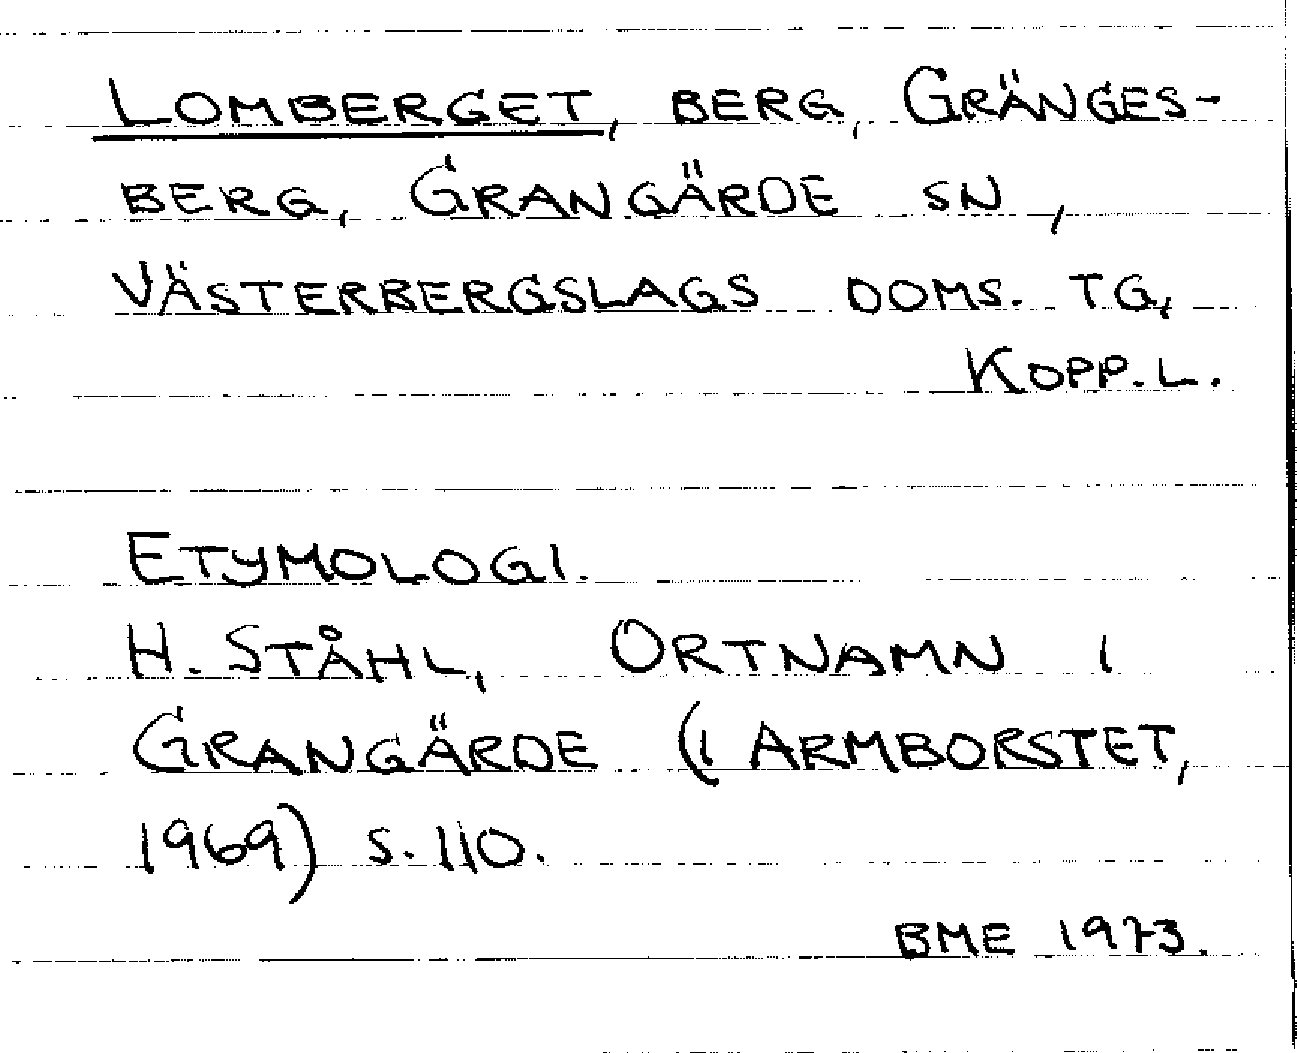 LOMBERGET, BERG, GRÄNGES-
BERG, GRANGÄRDE SN,
VÄSTERBERGSLAGS DOMS. TG,
KOPP. L.
ETYMOLOGI.
H. STÅHL, ORTNAMN I
GRANGÄRDE (I ARMBORSTET,
1969) S. 110.
BME 1973.